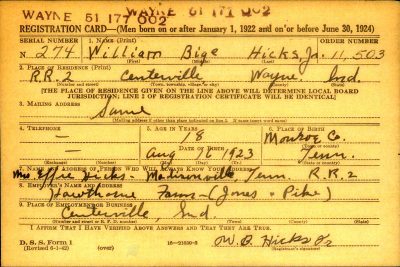 WAYNE 51 177 002
WAYNE 51 177 002
REGISTRATION CARD—(Men born on or after January 1, 1922 and on or before June 30, 1924)
SERIAL NUMBER 1. NAME (Print) ORDER NUMBER
N 274 William Bige Hicks Jr. 11,503
(First) (Middle) (Last)
2. PLACE OF RESIDENCE (Print)
R.R. 2 Centerville Wayne Ind.
(Number and street) (Town, township, village, or city) (County) (State)
[THE PLACE OF RESIDENCE GIVEN ON THE LINE ABOVE WILL DETERMINE LOCAL BOARD
JURISDICTION; LINE 2 OF REGISTRATION CERTIFICATE WILL BE IDENTICAL]
3. MAILING ADDRESS
Same
[Mailing address if other than place indicated on line 2. If same insert word same]
4. TELEPHONE 5. AGE IN YEARS 6. PLACE OF BIRTH
— 18 Monroe Co.
DATE OF BIRTH (Town or county)
— Aug 1 1923 Tenn.
(Exchange) (Number) (Mo.) (Day) (Yr.) (State or country)
7. NAME AND ADDRESS OF PERSON WHO WILL ALWAYS KNOW YOUR ADDRESS
Mrs Hicks Madisonville, Tenn. R.R. 2
8. EMPLOYER'S NAME AND ADDRESS
Hawthorne Farm—(Jones + Pike)
9. PLACE OF EMPLOYMENT OR BUSINESS
Centerville, Ind.
(Number and street or R. F. D. number) (Town) (County) (State)
I AFFIRM THAT I HAVE VERIFIED ABOVE ANSWERS AND THAT THEY ARE TRUE.
D. S. S. Form 1
(Revised 6-1-42) (over) 16—21630-2 W. B. Hicks Jr
(Registrant's signature)